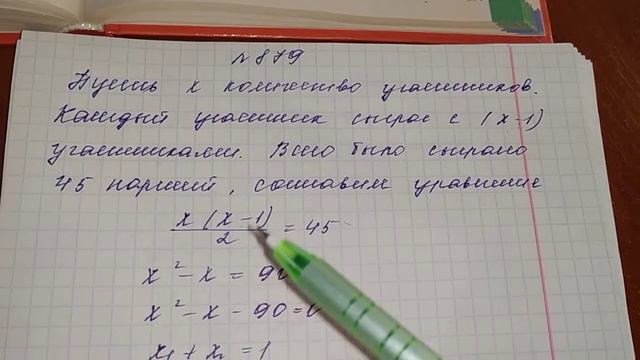 № 879
Пусть x количество участников.
Каждый участник сыграл с (x-1)
участниками. Всего было сыграно
45 партий, составим уравнение
x(x-1)/2 = 45
x² - x = 90
x² - x - 90 = 0
x₁ + x₂ = 1